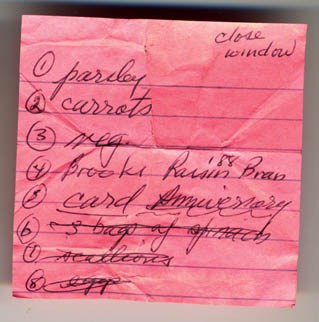 close
window
① parsley
② carrots
③ veg.
④ Brooke Raisin 88 Bran
⑤ card Anniversary
⑥ 3 bags of spinach
⑦ scallions
⑧ eggs